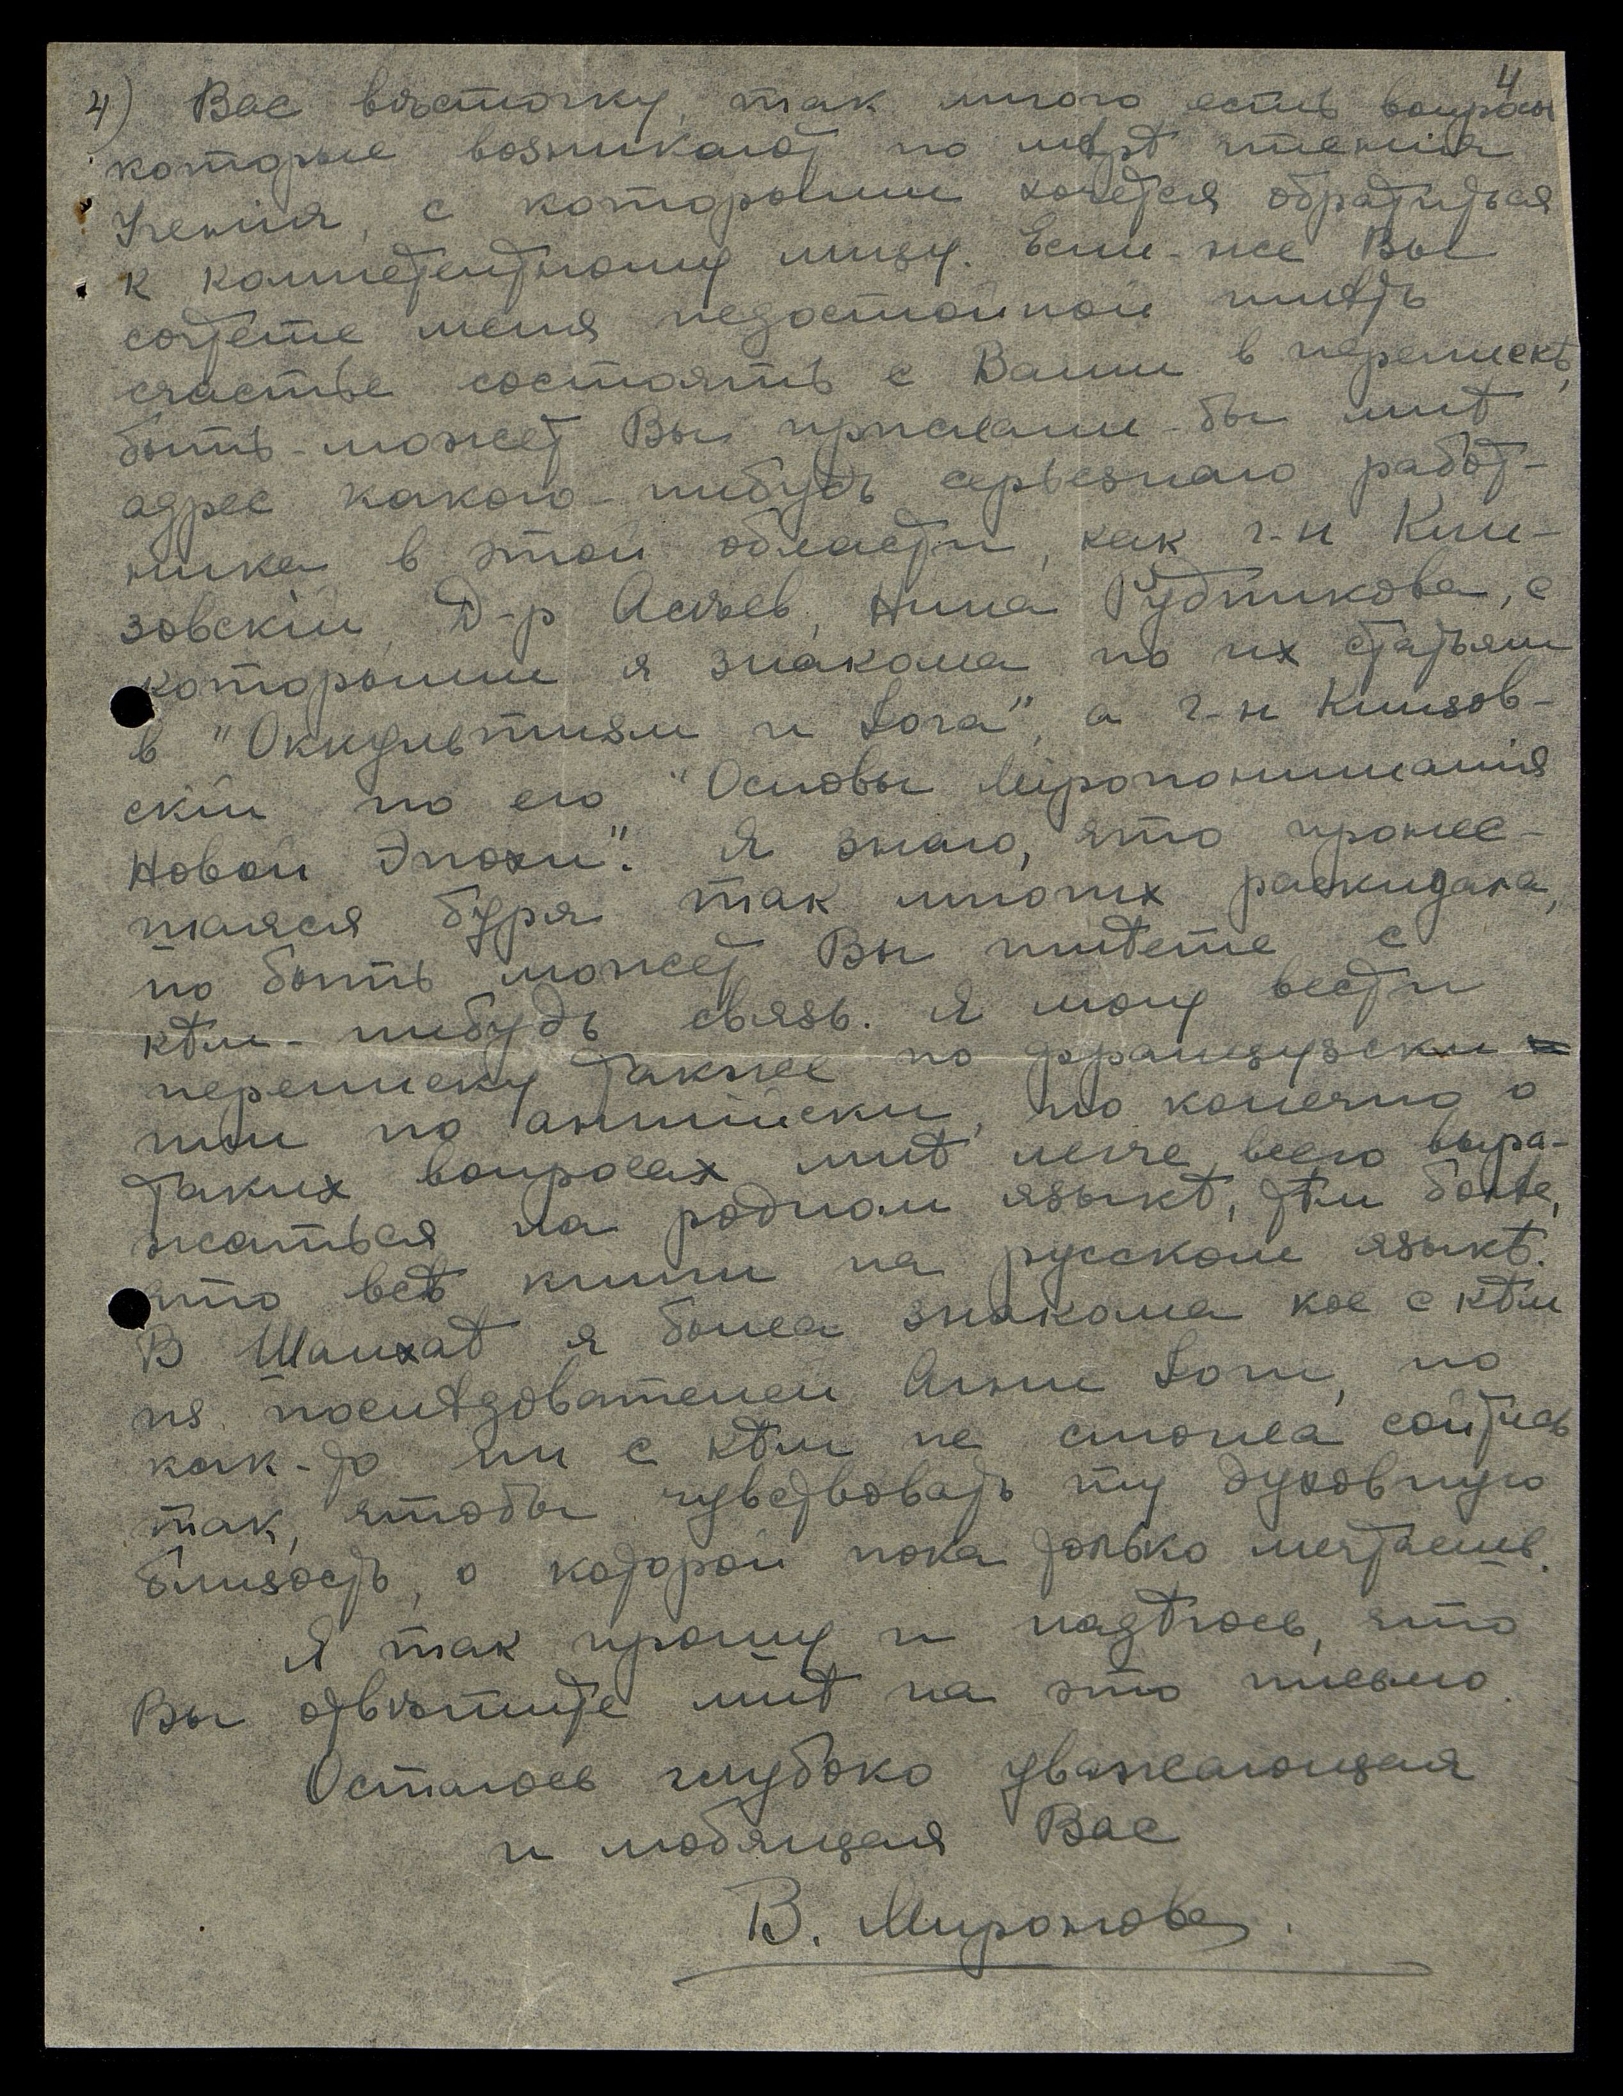 4
4) Вас вѣсточку, так много есть вопросов
которые возникают по мѣрѣ чтенія
Ученія, с которыми хочется обратиться
к компетентному лицу. Если-же Вы
сочтете меня недостойной имѣть
счастье состоять с Вами в перепискѣ,
быть-может Вы прислали-бы мнѣ
адрес какого-нибудь серьезнаго работ-
ника в этой области, как г-н Кли-
зовскій, Д-р Асѣев, Нина Рудникова, с
которыми я знакома по их статьям
в "Оккультизм и Iога", а г-н Клизов-
скій по его "Основы Мiропониманія
Новой Эпохи". Я знаю, что пронес-
шаяся буря так многих раскидала,
но быть может Вы имѣете с
кѣм-нибудь связь. Я могу вести
переписку также по французски
или по англійски, но конечно о
таких вопросах мнѣ легче всего выра-
жаться на родном языкѣ, тѣм болѣе,
что всѣ книги на русском языкѣ.
В Шанхаѣ я была знакома кое с кѣм
из послѣдователей Агни Iоги, но
как-то ни с кѣм не смогла сойтись
так, чтобы чувствовать ту духовную
близость, о которой пока только мечтаешь.
Я так прошу и надѣюсь, что
Вы отвѣтите мнѣ на это письмо.
Остаюсь глубоко уважающая
и любящая Вас
В. Миронова.